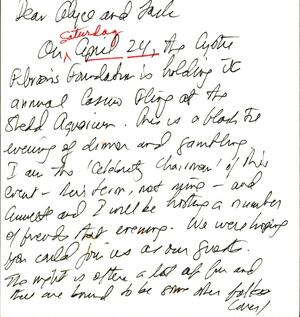 Dear Alyce and Jack
Saturday
On ^ April 24, the Cystic
Fibrosis Foundation is holding its
annual Casino Fling at the
Shedd Aquarium. This is a black tie
evening of dinner and gambling.
I am the 'Celebrity Chairman' of this
event - their term, not mine - and
and I will be hosting a number
of friends that evening. We were hoping
you could join us as our guests.
The night is often a lot of fun and
there are bound to be some other
(over)